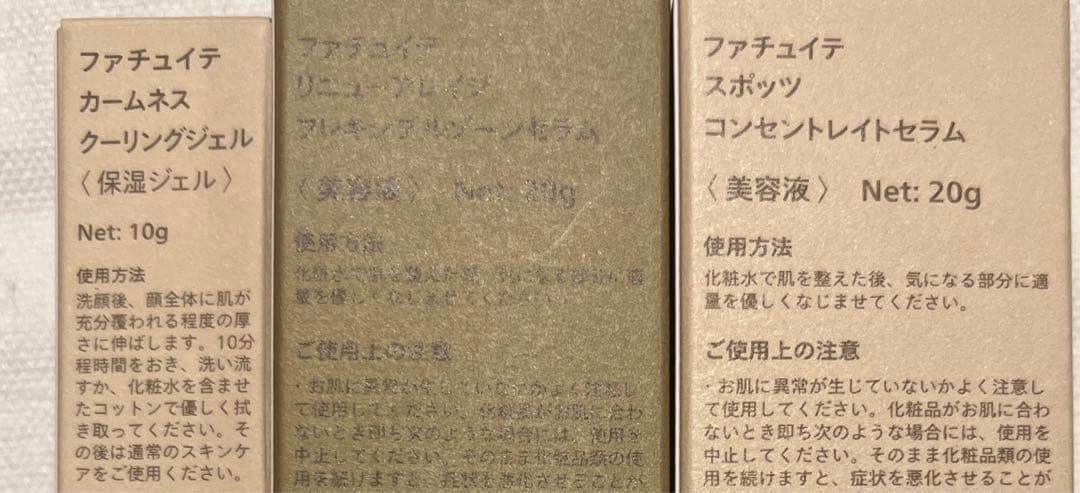 ファチュイテ
カームネス
クーリングジェル
〈 保湿ジェル 〉
Net: 10g
使用方法
洗顔後、顔全体に肌が
充分覆われる程度の厚
さに伸ばします。10分
程時間をおき、洗い流
すか、化粧水を含ませ
たコットンで優しく拭
き取ってください。そ
の後は通常のスキンケ
アをご使用ください。
ファチュイテ
リニューアレイテ
フレキシブルゾーンセラム
〈 美容液 〉 Net: 20g
使用方法
化粧水で肌を整えた後、気になる部分に適
量を優しくなじませてください。
ご使用上の注意
・お肌に異常が生じていないかよく注意し
て使用してください。化粧品がお肌に合わ
ないとき即ち次のような場合には、使用を
中止してください。そのまま化粧品類の使
用を続けますと、症状を悪化させることが
ファチュイテ
スポッツ
コンセントレイトセラム
〈 美容液 〉 Net: 20g
使用方法
化粧水で肌を整えた後、気になる部分に適
量を優しくなじませてください。
ご使用上の注意
・お肌に異常が生じていないかよく注意し
て使用してください。化粧品がお肌に合わ
ないとき即ち次のような場合には、使用を
中止してください。そのまま化粧品類の使
用を続けますと、症状を悪化させることが